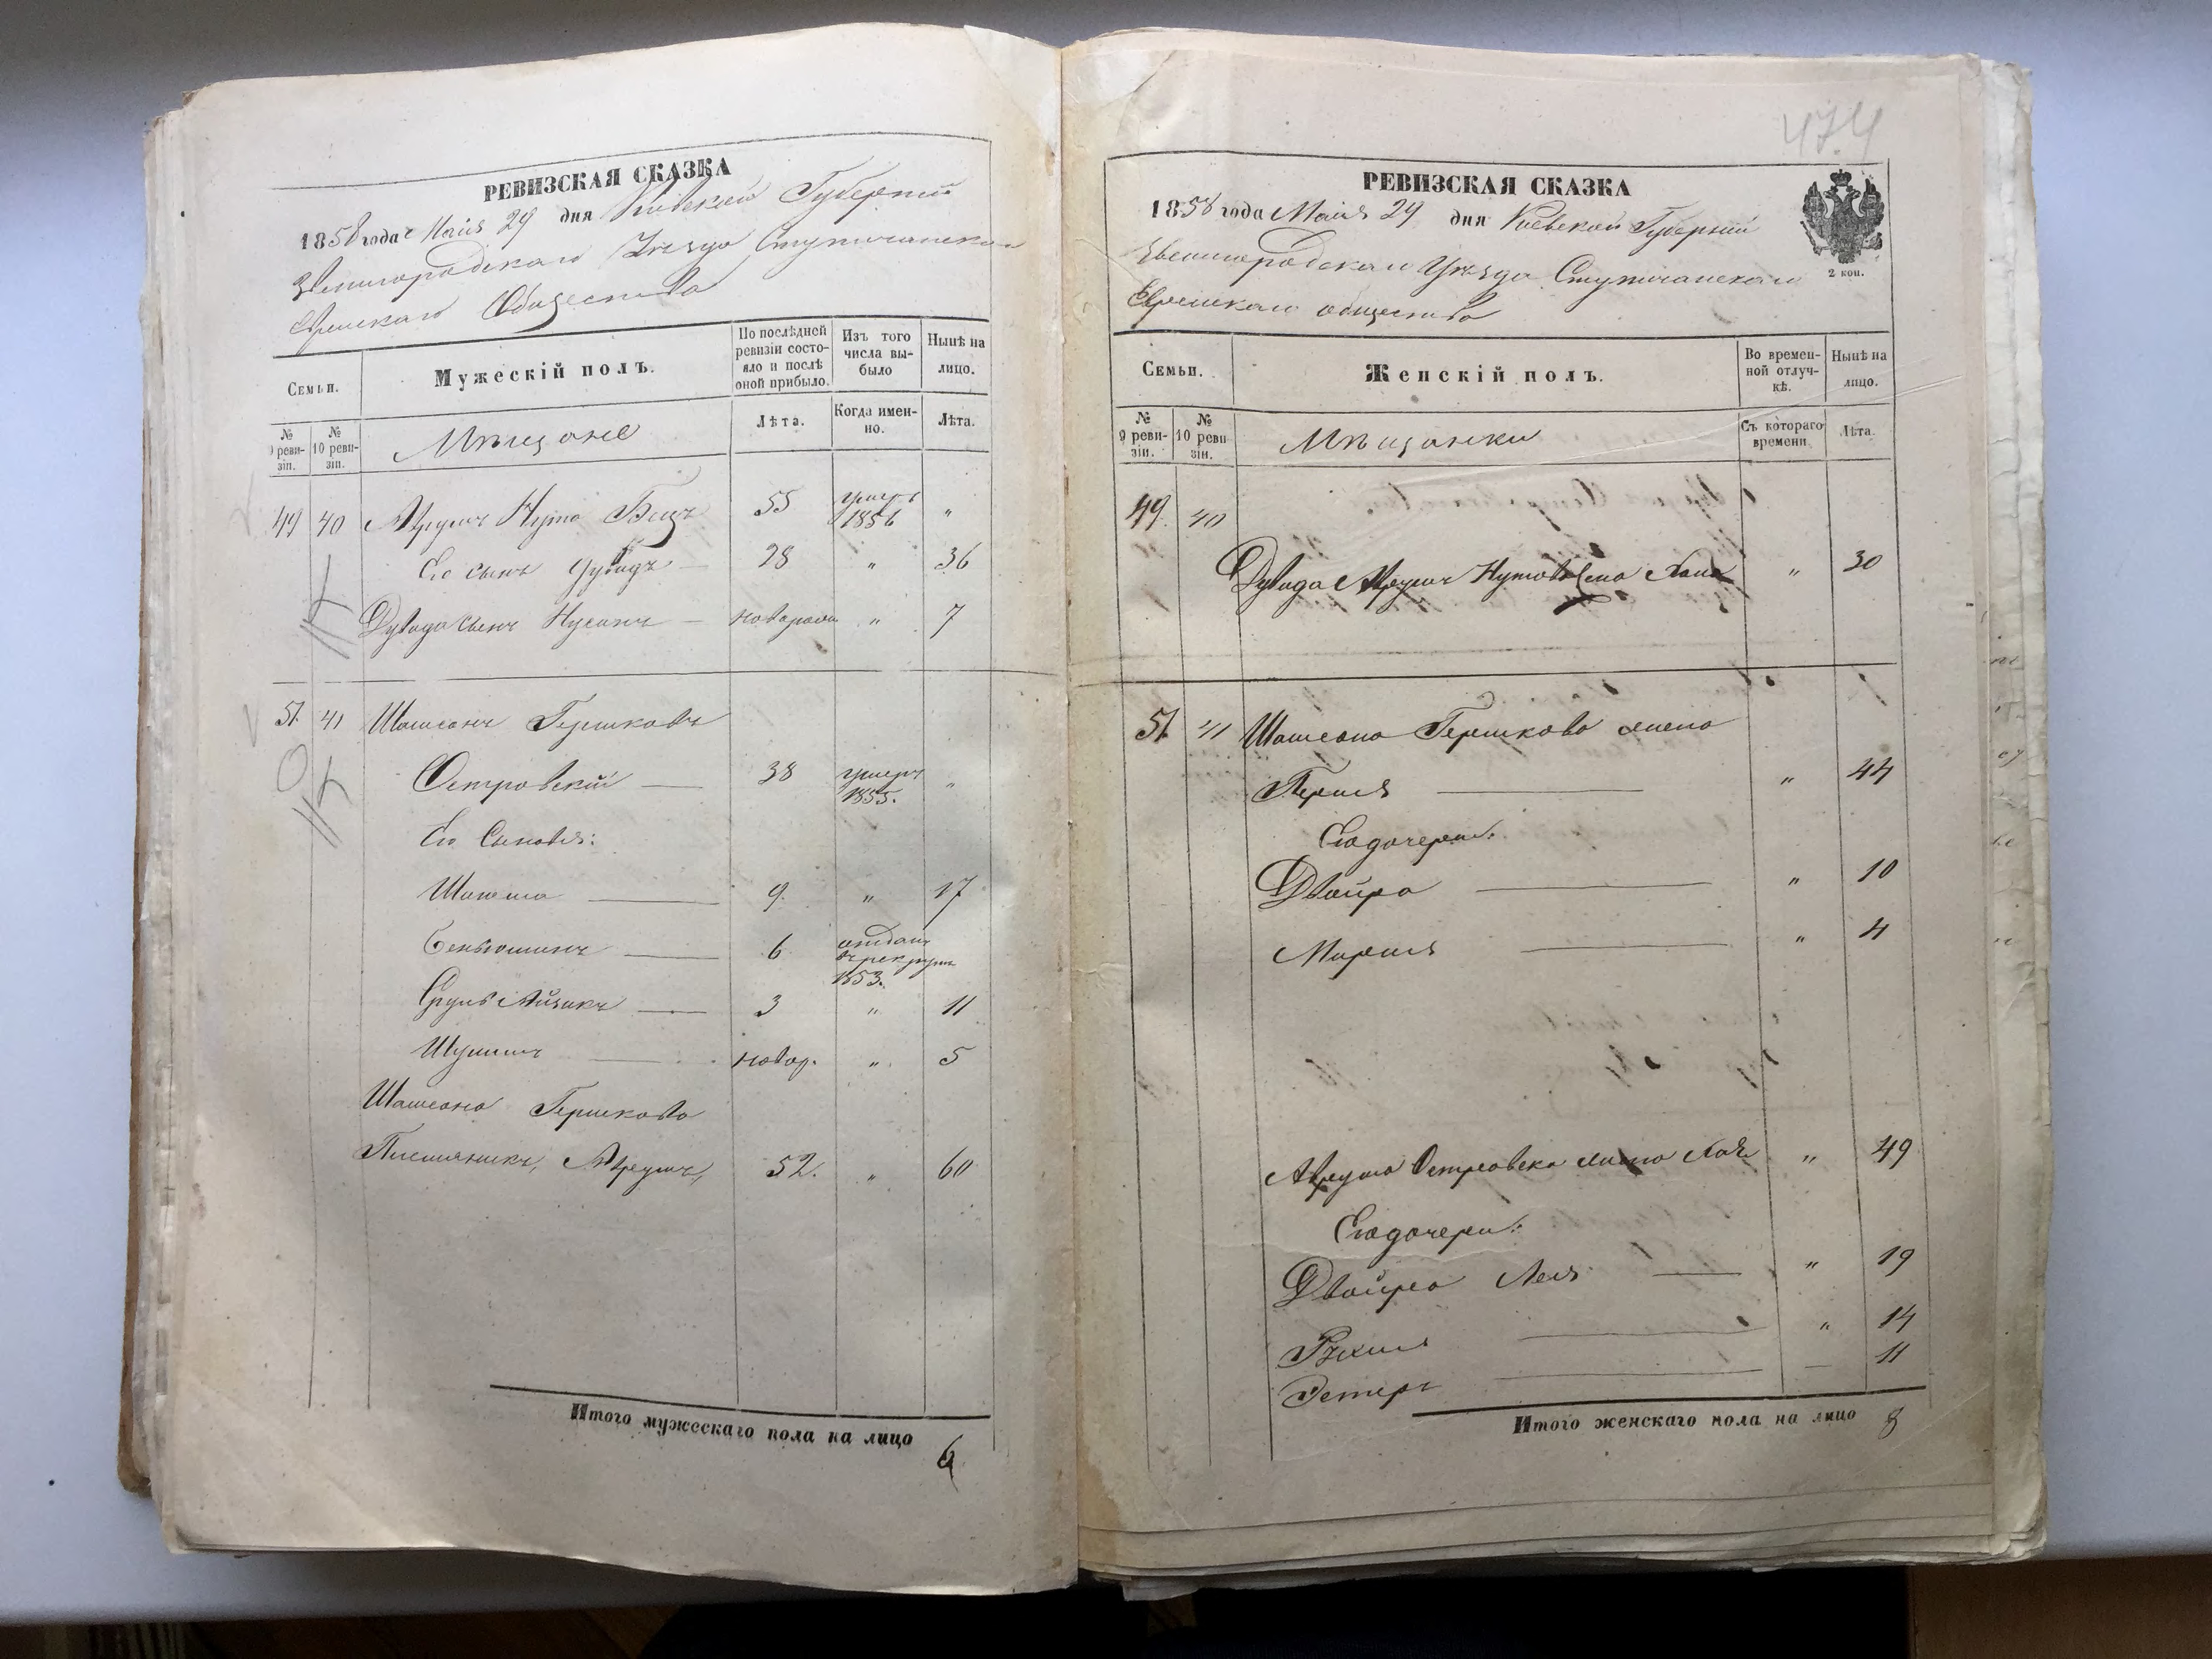 РЕВИЗСКАЯ СКАЗКА
1858 года Маія 29 дня Кіевской Губерніи
Звенигородскаго Уѣзда
Еврейскаго Общества
Семьи.
Мужескій полъ.
По послѣдней ревизіи состояло и послѣ оной прибыло.
Изъ того числа выбыло
Нынѣ на лицо.
№ 9 ревизіи.
№ 10 ревизіи.
Мѣщане
Лѣта.
Когда именно.
Лѣта.
49 40 Аврумъ Нута 55 умеръ 1856 "
Его сынъ Дувидъ 28 " 36
Дувида сынъ Нусинъ новорож " 7
51. 41 Шамсонъ Гершковъ
Островскій 38 умеръ 1855. "
Его Сыновья:
9. " 17
Беньюминъ 6 отданъ въ рекруты 1853.
Сруль Айзикъ 3 " 11
новор. " 5
Шамсона Гершкова
Племянникъ, Аврумъ, 52. " 60
Итого мужескаго пола на лицо 6
474
РЕВИЗСКАЯ СКАЗКА
1858 года Маія 29 дня Кіевской Губерніи
Звенигородскаго Уѣзда
Еврейскаго общества
2 коп.
Семьи.
Женскій полъ.
Во временной отлучкѣ.
Нынѣ на лицо.
№ 9 ревизіи.
№ 10 ревизіи.
Мѣщанки
Съ котораго времени
Лѣта.
49. 40
Дувида Аврумъ Нутова жена Хана " 30
51. 41 Шамсона Гершкова жена
" 44
Его дочери:
Двойра " 10
" 4
Аврума Островска жена Хая " 49
Его дочери:
Двойра Лея " 19
Рухля " 14
Эстеръ 11
Итого женскаго пола на лицо 8